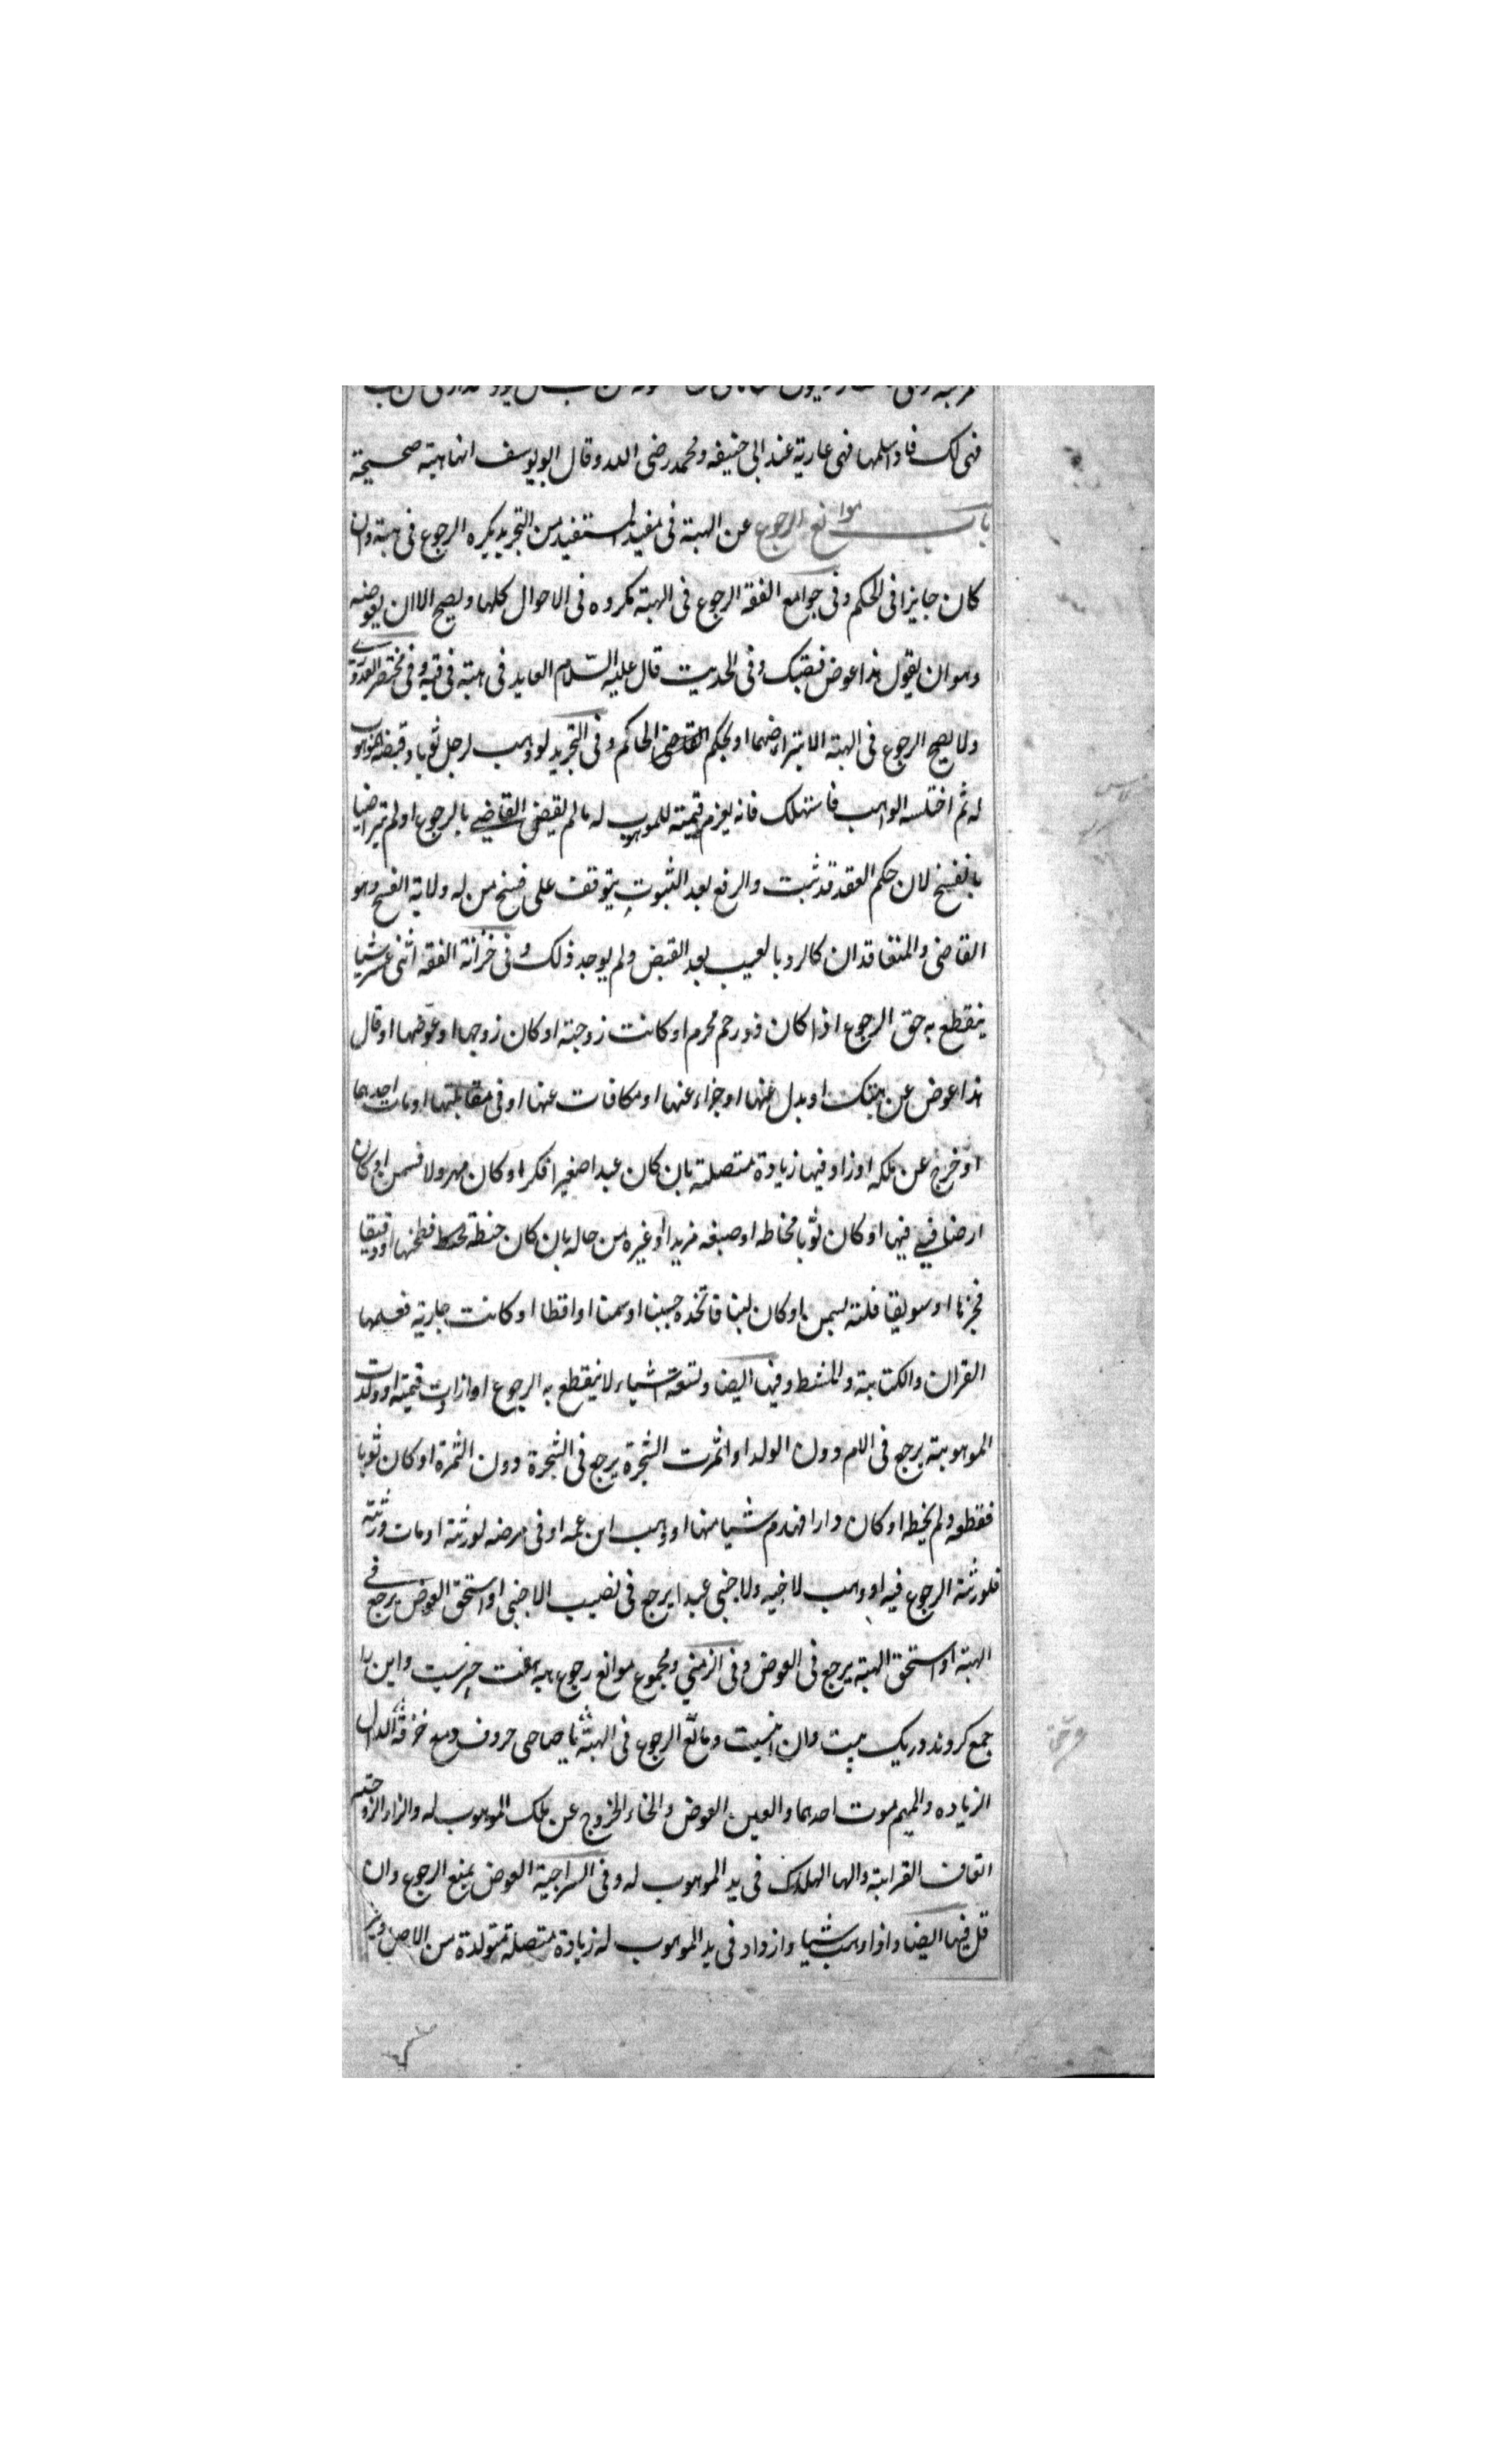 فهى لك فاذا سلمها فهى عارية عند ابى حنيفه ومحمد رضى الله وقال ابو يوسف انها هبته صحيحة
باب موانع الرجوع عن الهبة فى مفيد المستفيد من التجريد يكره الرجوع فى هبته وان
كان جايزا فى الحكم وفى جوامع الفقه الرجوع فى الهبة مكروه فى الاحوال كلها ويصح الا ان يعوضه
وهو ان يقول هذا عوض هبتك وفى الحديث قال عليه السّلام العايد فى هبته فى قيه وفى مختصر القدورى
ولا يصح الرجوع فى الهبة الا بتراضهما او بحكم القاضى الحاكم وفى التجريد لو وهب لرجل ثوبا وقبضه الموهوب
له ثم اختلسه الواهب فاستهلك فانه يغرم قيمته للموهوب له ما لم يقضى القاضى بالرجوع او لم يتراضيا
بالفسخ لان حكم العقد قد ثبت والرفع بعد الثبوت يتوقف على فسخ من له ولاية الفسخ وهو
القاضى والمتعاقدان كالرد بالعيب بعد القبض ولم يوجد ذلك وفى خزانة الفقه اثنى عشر شيا
ينقطع به حق الرجوع اذا كان ذو رحم محرم او كانت زوجته او كان زوجها او عوّضها او قال
هذا عوض عن هبتك او بدل عنها او جزاء عنها او مكافات عنها او فى مقابلتها او مات احدهما
او خرج عن ملكه او زاد فيها زيادة متصلة بان كان عبدا صغيرا فكبر او كان مهزولا فسمن او كان
ارضا فبنى فيها او كان ثوبا فخاطه او صبغه مزيدا او غيره من حاله بان كان حنطة فطحنها او دقيقا
فخبزها او سويقا فلته بسمن او كان لبنا فاتخذه جبنا او سمنا او اقطا او كانت جارية فعلمها
القران والكتابة والمشط وفيها ايضا وتسعة اشياء لا ينقطع به الرجوع اذا زادت قيمته او ولدت
الموهوبة يرجع فى الام دون الولد او اثمرت الشجرة يرجع فى الشجرة دون الثمرة او كان ثوبا
فقطعه ولم يخيطه او كان دارا فهدم شيا منها او وهب ابن عمه او فى مرضه لورثته او مات ورثته
فلورثته الرجوع فيه او وهب لاخيه ولاجنبى عبدا يرجع فى نصيب الاجنبى او استحق العوض يرجع فى
الهبة او استحق الهبة يرجع فى العوض وفى ومجموع موانع رجوع هبه هفت چيزست واين را
جمع كردند در يك بيت وان اينست ومانع الرجوع فى الهبة يا صاحى حروف دمع خزقه الدال
الزياده والميم موت احدهما والعين العوض والخاء الخروج عن ملك الموهوب له والزاء الزوجية
القاف القرابة والها الهلاك فى يد الموهوب له وفى السراجية العوض يمنع الرجوع وان
قل فيها ايضا واذا وهب شيا وازداد فى يد الموهوب له زيادة متصلة متولدة من الاصل